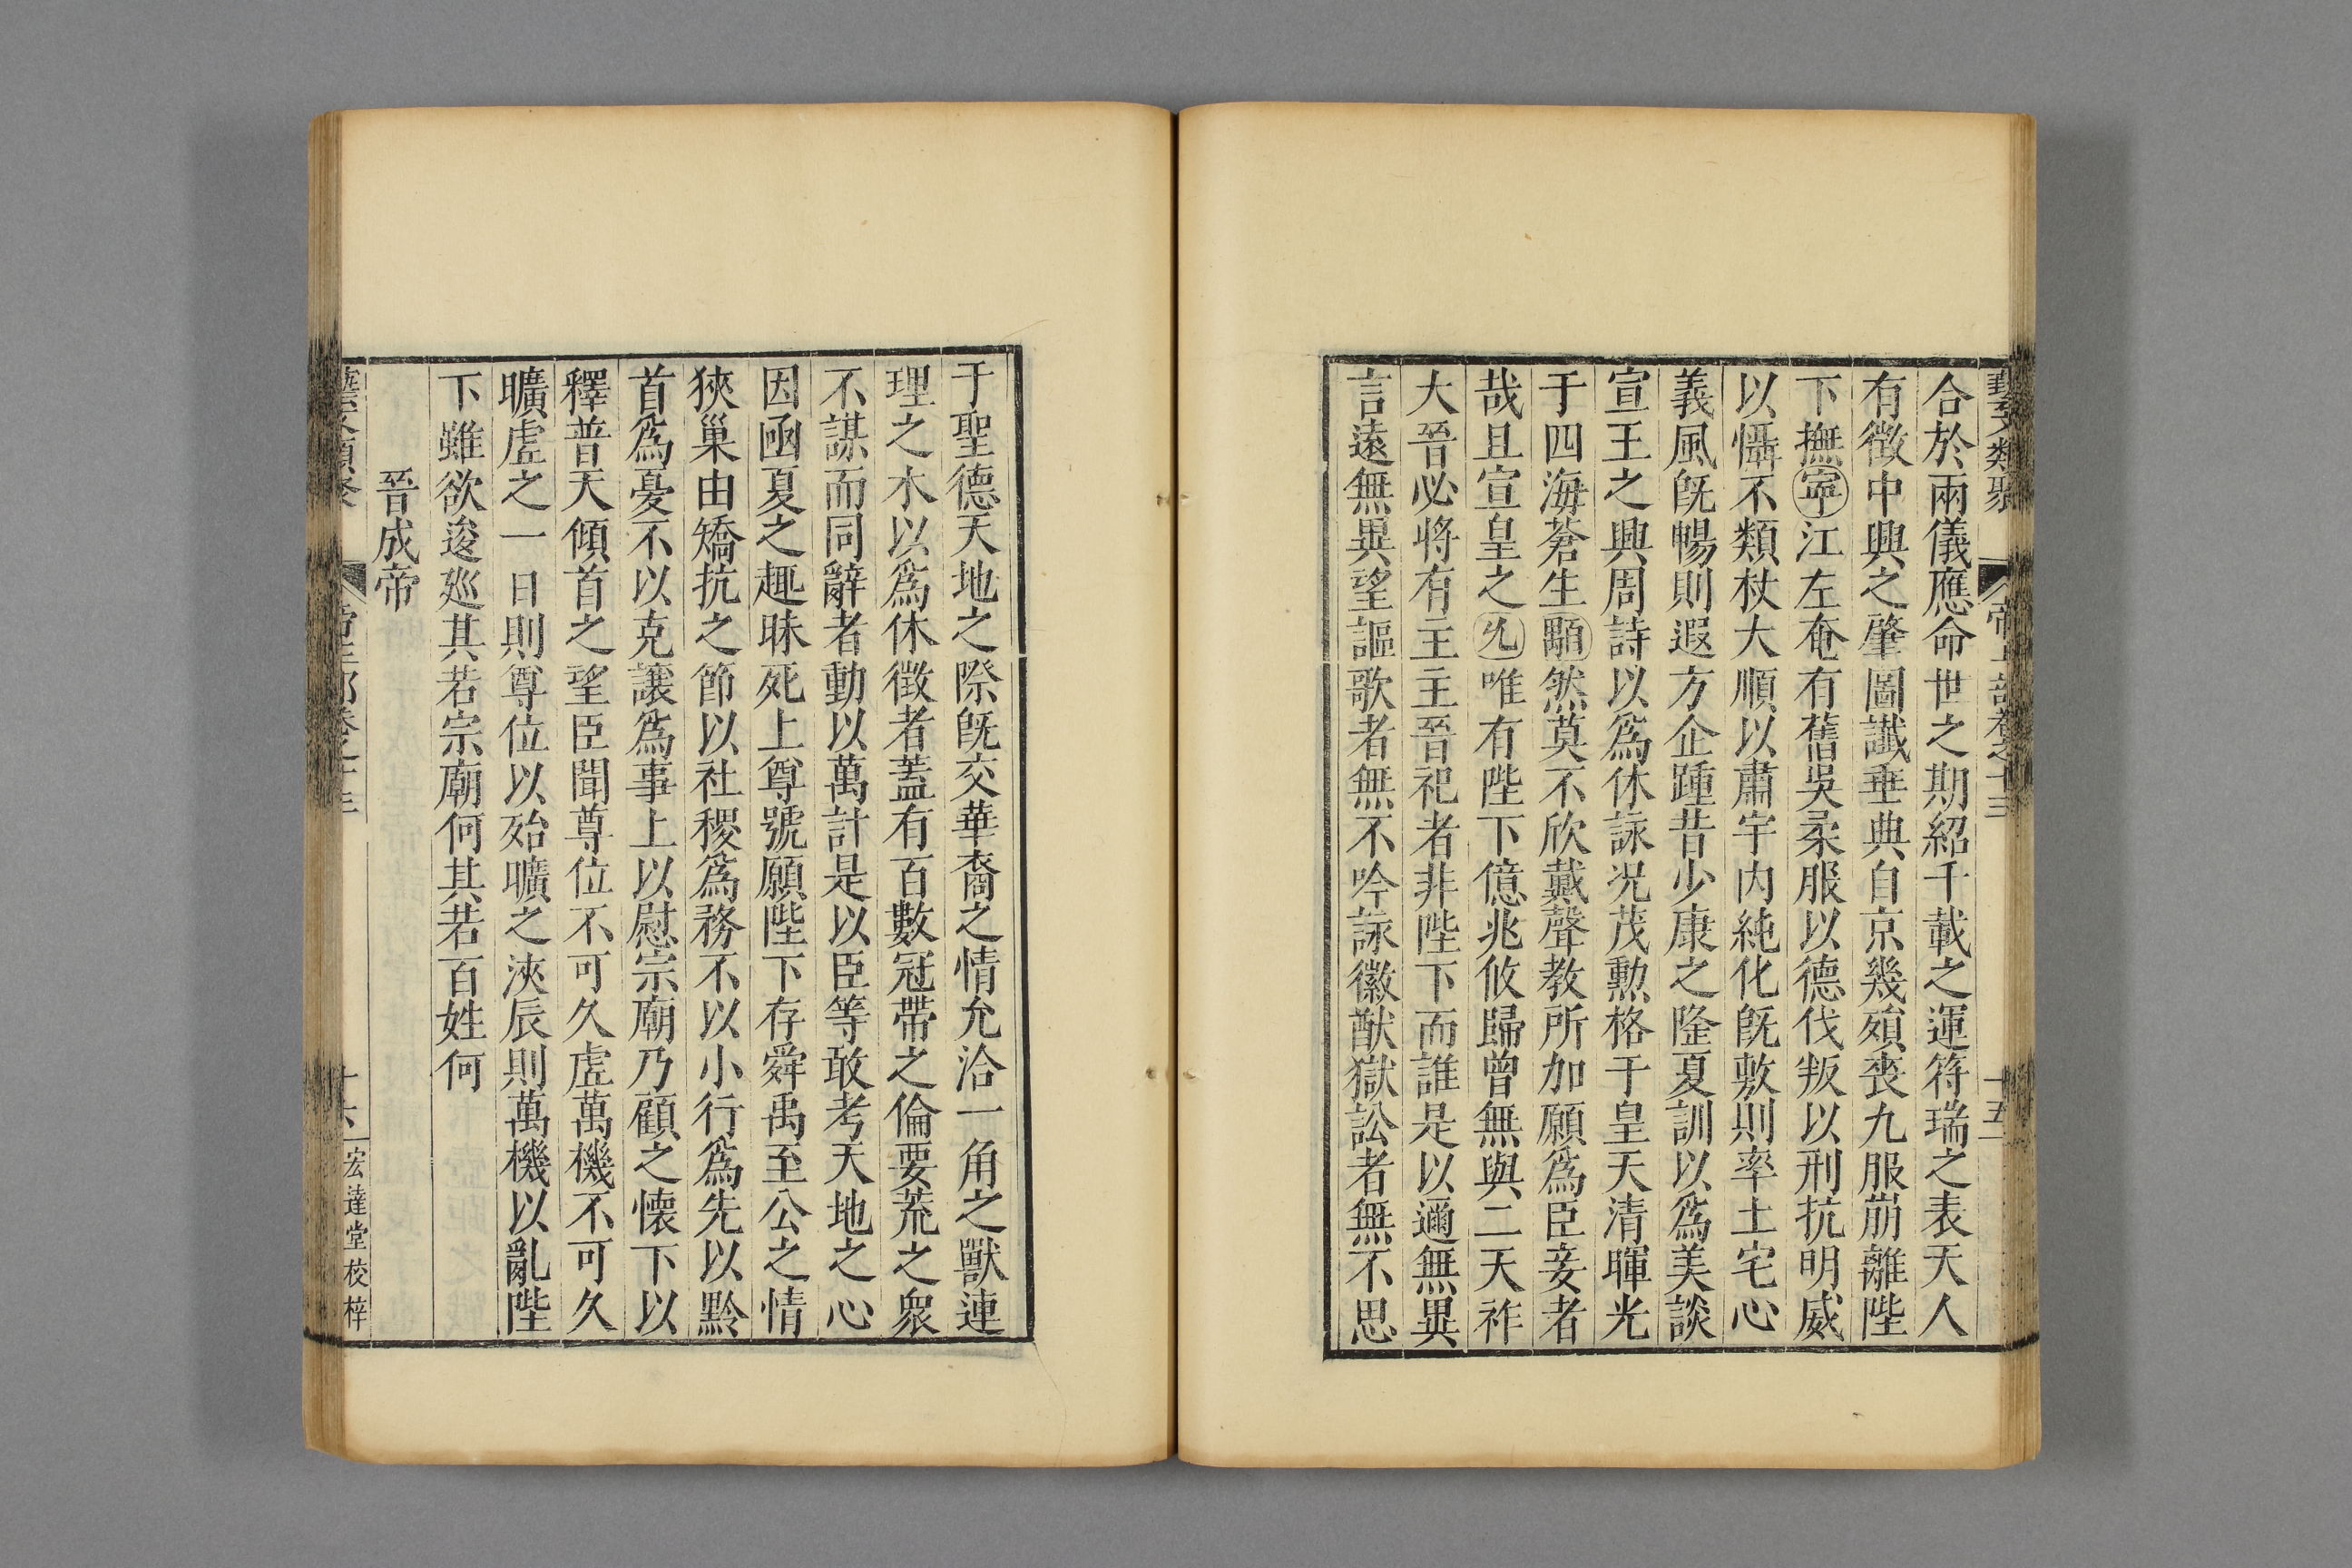 藝文類聚 帝王部卷之十三 十五
合於兩儀應命世之期紹千載之運符瑞之表天人
有徵中興之肇圖讖垂典自京幾殞喪九服崩離陛
下撫寧江左奄有舊吳柔服以德伐叛以刑抗明威
以懾不類杖大順以肅宇内純化旣敷則率土宅心
義風旣暢則遐方企踵昔少康之隆夏訓以爲美談
宣王之興周詩以爲休詠况茂勲格于皇天清暉光
于四海蒼生顒然莫不欣戴聲教所加願爲臣妾者
哉且宣皇之㐹唯有陛下億兆攸歸曾無與二天祚
大晉必將有主主晉祀者非陛下而誰是以邇無異
言遠無異望謳歌者無不吟詠徽猷獄訟者無不思
于聖德天地之際旣交華裔之情允洽一角之獸連
理之木以爲休徵者蓋有百數冠帶之倫要荒之衆
不謀而同辭者動以萬計是以臣等敢考天地之心
因函夏之趣昧死上尊號願陛下存舜禹至公之情
狹巢由矯抗之節以社稷爲務不以小行爲先以黔
首爲憂不以克讓爲事上以慰宗廟乃顧之懷下以
釋普天傾首之望臣聞尊位不可久虛萬機不可久
曠虛之一日則尊位以殆曠之浹辰則萬機以亂陛
下雖欲逡巡其若宗廟何其若百姓何
晉成帝
藝文類聚 帝王部卷之十三 十六 宏達堂校梓